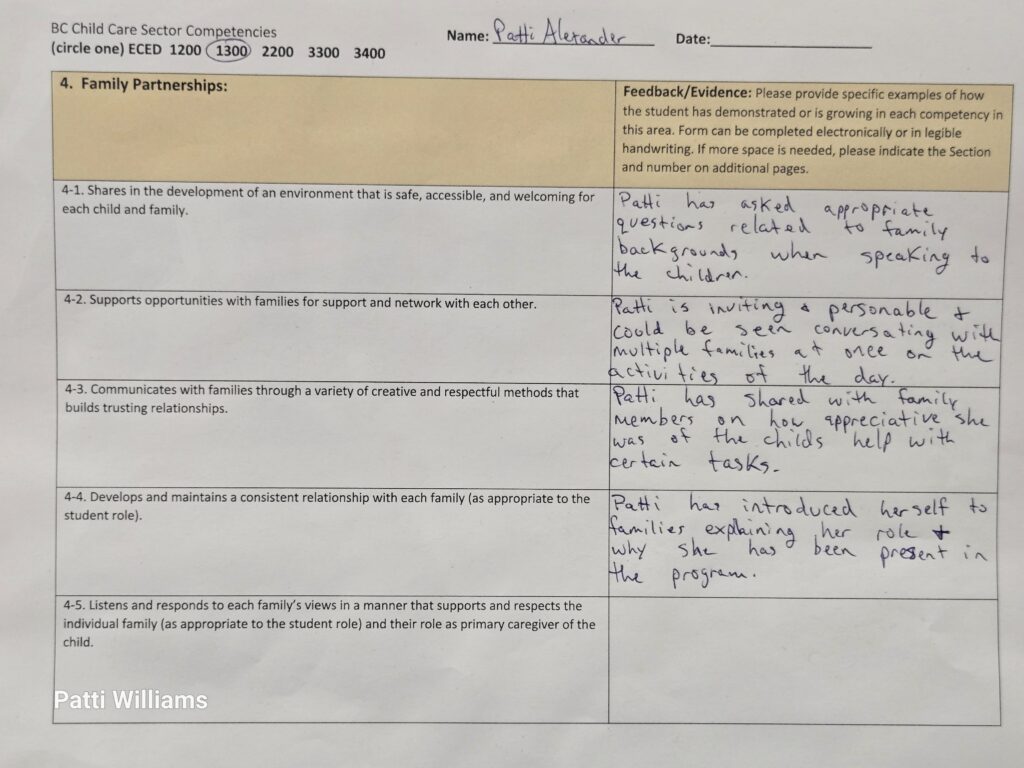 BC Child Care Sector Competencies
(circle one) ECED 1200 1300 2200 3300 3400
Name: Patti Alexander Date:
4. Family Partnerships:
Feedback/Evidence: Please provide specific examples of how
the student has demonstrated or is growing in each competency in
this area. Form can be completed electronically or in legible
handwriting. If more space is needed, please indicate the Section
and number on additional pages.
4-1. Shares in the development of an environment that is safe, accessible, and welcoming for
each child and family.
Patti has asked appropriate
questions related to family
backgrounds when speaking to
the children.
4-2. Supports opportunities with families for support and network with each other.
Patti is inviting & personable +
could be seen conversating with
multiple families at once on the
activities of the day.
4-3. Communicates with families through a variety of creative and respectful methods that
builds trusting relationships.
Patti has shared with family
members on how appreciative she
was of the childs help with
certain tasks.
4-4. Develops and maintains a consistent relationship with each family (as appropriate to the
student role).
Patti has introduced herself to
families explaining her role +
why she has been present in
the program.
4-5. Listens and responds to each family's views in a manner that supports and respects the
individual family (as appropriate to the student role) and their role as primary caregiver of the
child.
Patti Williams